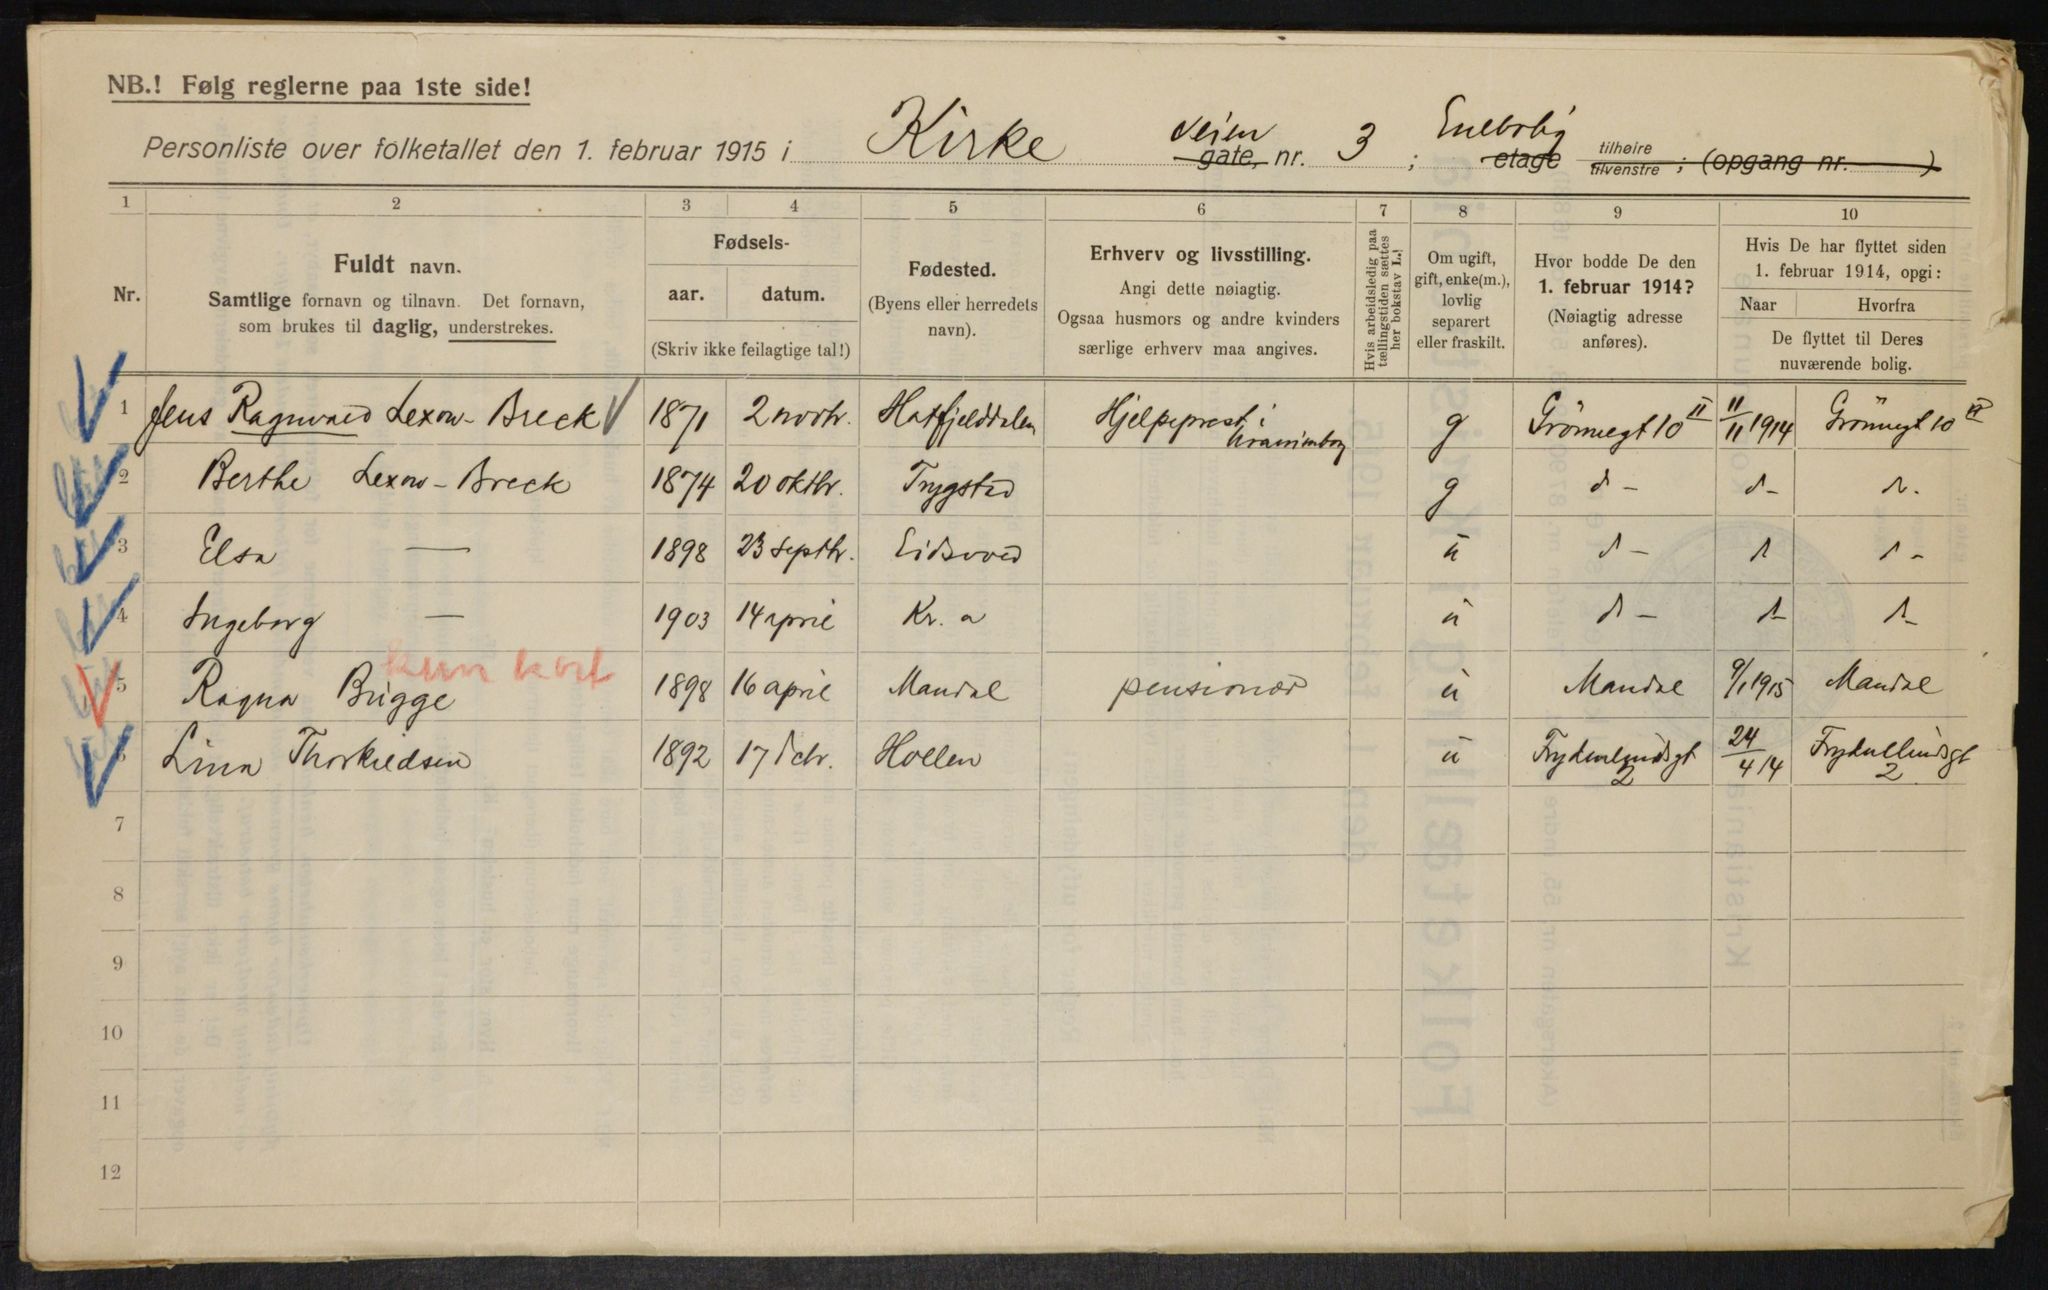 NB.! Følg reglerne paa 1ste side!
Personliste over folketallet den 1. februar 1915 i Kirke veien gate, nr. 3 ; Enebolig etage tilhøire tilvenstre ; (opgang nr. )
1 2 3 4 5 6 7 8 9 10
Nr.
Fuldt navn.
Samtlige fornavn og tilnavn. Det fornavn,
som brukes til daglig, understrekes.
Fødsels-
aar. datum.
(Skriv ikke feilagtige tal!)
Fødested.
(Byens eller herredets
navn).
Erhverv og livsstilling.
Angi dette nøiagtig.
Ogsaa husmors og andre kvinders
særlige erhverv maa angives.
Hvis arbeidsledig paa
tællingstiden sættes
her bokstav L.!
Om ugift,
gift, enke(m.),
lovlig
separert
eller fraskilt.
Hvor bodde De den
1. februar 1914?
(Nøiagtig adresse
anføres).
Hvis De har flyttet siden
1. februar 1914, opgi:
Naar Hvorfra
De flyttet til Deres
nuværende bolig.
1 Jens Ragnvald Lexow-Breck 1871 2 novbr. Hatfjelddalen Hjelpeprest i Uranienborg g Grönnegt 10 II 11/11 1914 Grönnegt 10 II
2 Berthe Lexow-Breck 1874 20 oktbr. Trygstad g d - d - d -
3 Elsa — 1898 23 septbr. Eidsvold u d - d d -
4 Ingeborg — 1903 14 april Kr. a u d - d - d -
kun kort
5 Ragna Bugge 1898 16 april Mandal pensionær u Mandal 9/1 1915 Mandal
6 Lina Thorkildsen 1892 17 dcbr. Hollen u Frydenlundsgt 2 24/4 14 Frydenlundsgt 2
7
8
9
10
11
12